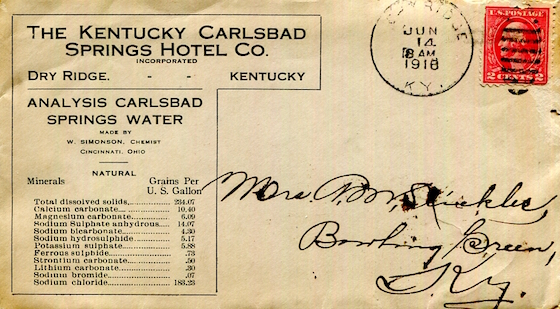 THE KENTUCKY CARLSBAD
SPRINGS HOTEL CO.
INCORPORATED
DRY RIDGE. - - KENTUCKY
ANALYSIS CARLSBAD
SPRINGS WATER
MADE BY
W. SIMONSON, CHEMIST
CINCINNATI, OHIO
NATURAL
Minerals Grains Per
U. S. Gallon
Total dissolved solids, 234.07
Calcium carbonate 10.40
Magnesium carbonate 6.09
Sodium Sulphate anhydrous 14.07
Sodium bicarbonate 4.30
Sodium hydrosulphide 5.17
Potassium sulphate 5.88
Ferrous sulphide .73
Strontium carbonate .50
Lithium carbonate .30
Sodium bromide .07
Sodium chloride 183.23
RIDGE
JUN
14
8 AM
1916
KY.
U.S. POSTAGE
2 CENTS 2
Mrs.
Bowling Green,
Ky.